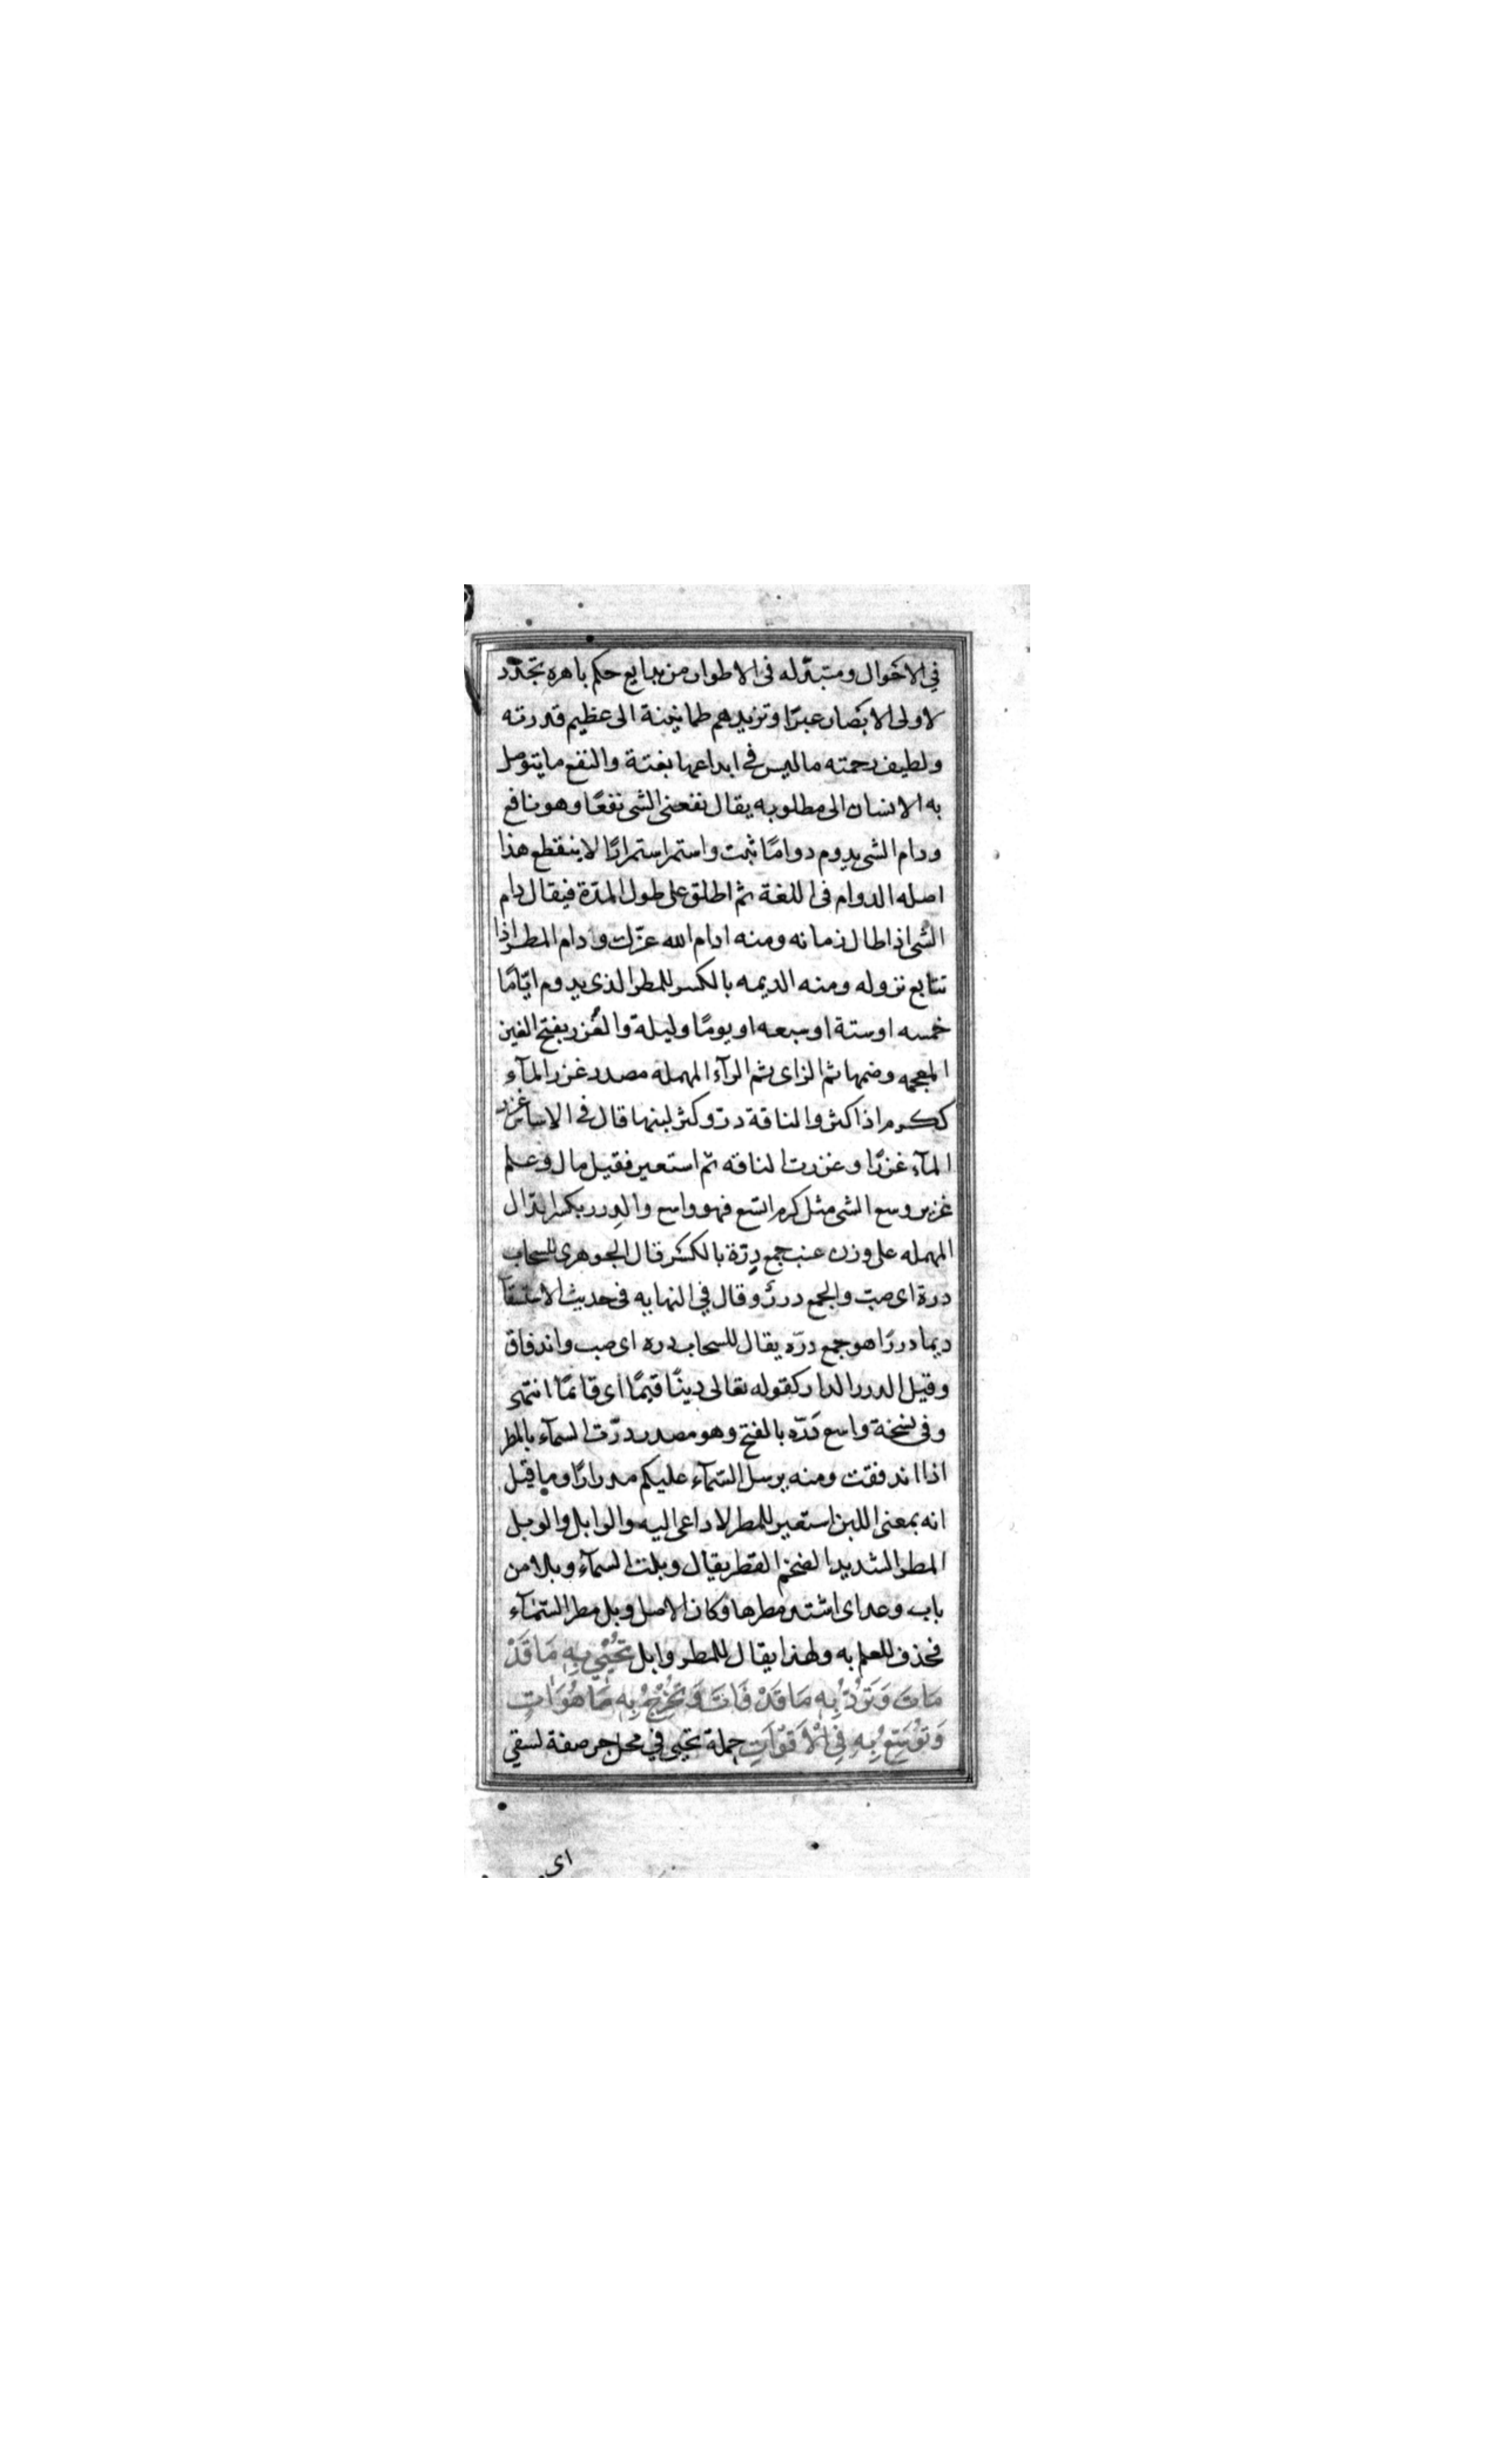 في الاحوال ومتبدله في الاطوار من بدايع حكم باهره تجدد
لاولى الابصار عبرًا وتزيدهم طمانينة الى عظيم قدرته
ولطيف رحمته ما ليس في ابداعها بغتة والنفع ما يتوصل
به الانسان الى مطلوبه يقال نفعنى الشى نفعًا وهو نافع
ودام الشى يدوم دوامًا ثبت واستمر استمرارًا لا ينقطع هذا
اصله الدوام فى اللغة ثم اطلق على طول المدّة فيقال دام
الشى اذا طال زمانه ومنه ادام الله عزّك ودام المطر اذا
تتابع نزوله ومنه الديمه بالكسر للمطر الذى يدوم ايّامًا
خمسه او ستة او سبعه او يومًا وليلة والغُزر بفتح الغين
المعجمه وضمها ثم الزاى ثم الرآء المهمله مصدر غزر المآء
ككرم اذا كثر والناقة درّ وكثر لبنها قال فى الاساس غزر
المآء غزرًا وغزرت الناقه ثم استعير فقيل مال وعلم
غزير وسع الشى مثل كرم اتسع فهو واسع والدِرر بكسر الدّال
المهمله على وزن عنب جمع دِرّة بالكسر قال الجوهرى للسحاب
درة اى صبّ والجمع دررٌ وقال في النهايه فى حديث الاستسقآ
ديما دررًا هو جمع درّه يقال للسحاب دره اى صب واندفاق
وقيل الدرر الدار كقوله تعالى دينًا قيمًا اى قائمًا انتهى
وفى نسخة واسع دَرّه بالفتح وهو مصدر درّت السمآء بالمطر
اذا اندفقت ومنه يرسل السّمآء عليكم مدرارًا وما قيل
انه بمعنى اللبن استعير للمطر لا داعى اليه والوابل والوبل
المطر الشديد الضخم القطر يقال وبلت السمآء وبلا من
باب وعد اى اشتد مطرها وكان الاصل وبل مطر السّمآء
فحذف للعلم به ولهذا يقال للمطر وابل تُحْيِي بِهِ مَا قَدْ
مَاتَ وَتَرُدُّ بِهِ مَا قَدْ فَاتَ وَتُخْرِجُ بِهِ مَا هُوَ اٰتٍ
وَتُوَسِّعُ بِهِ فِي الْاَقْوَاتِ جملة تحيى في محل جر صفة لسقي
اى